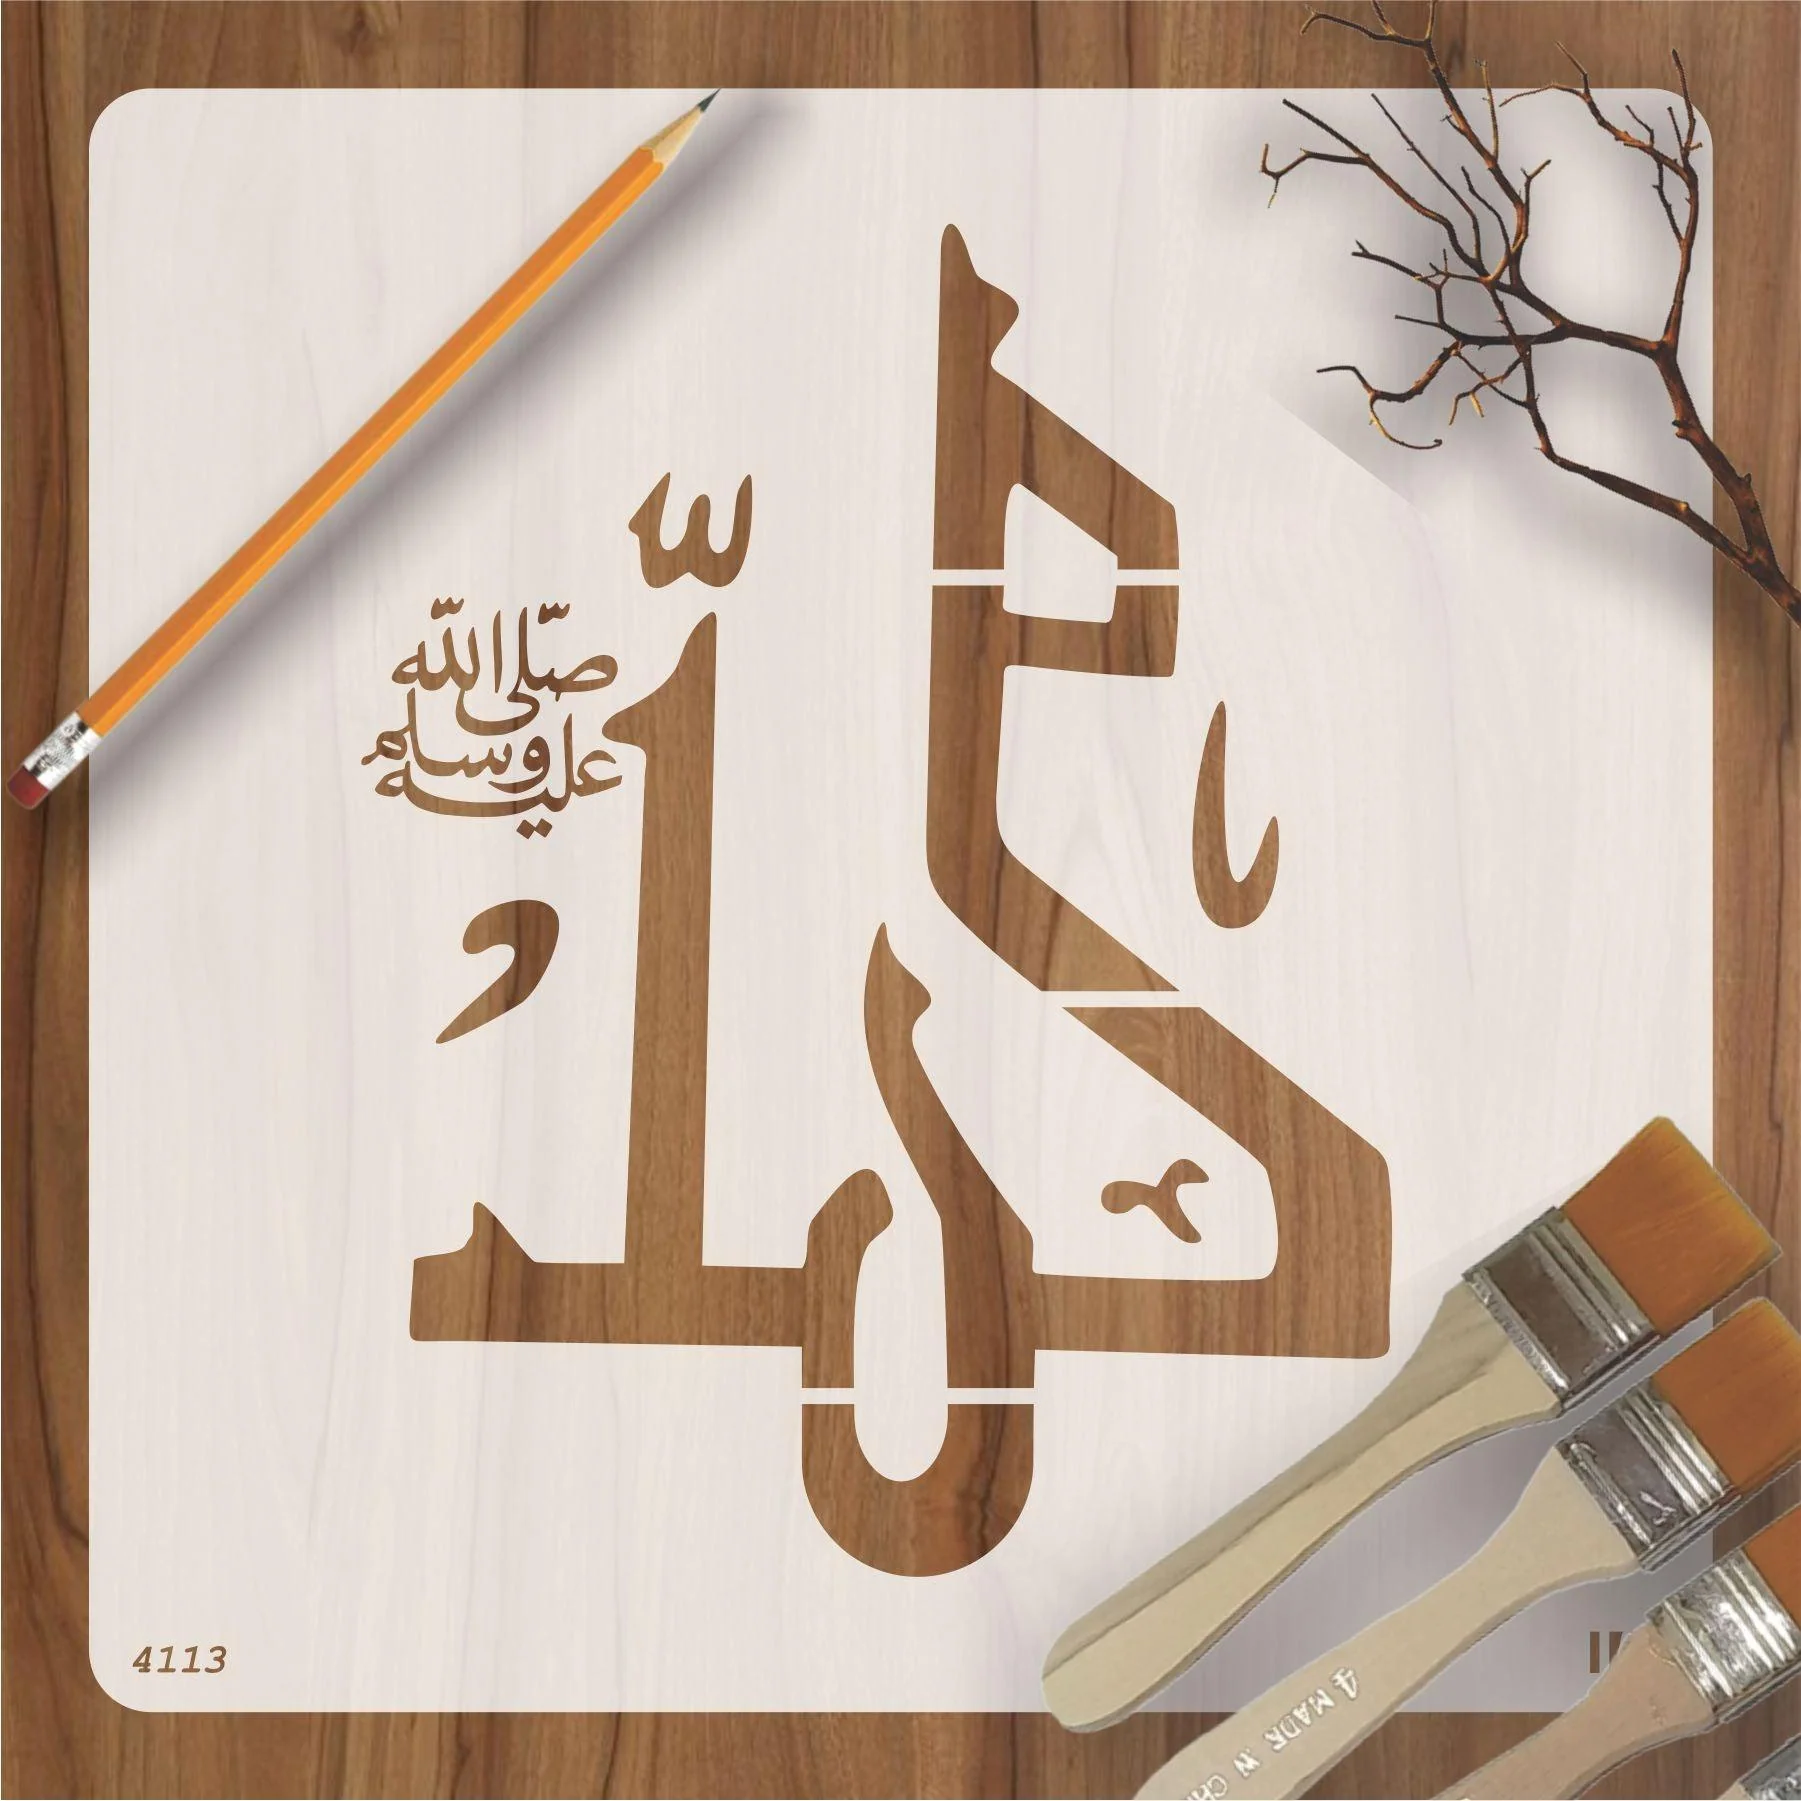 محمد
صلى الله
عليه وسلم
4113
4 MADE IN